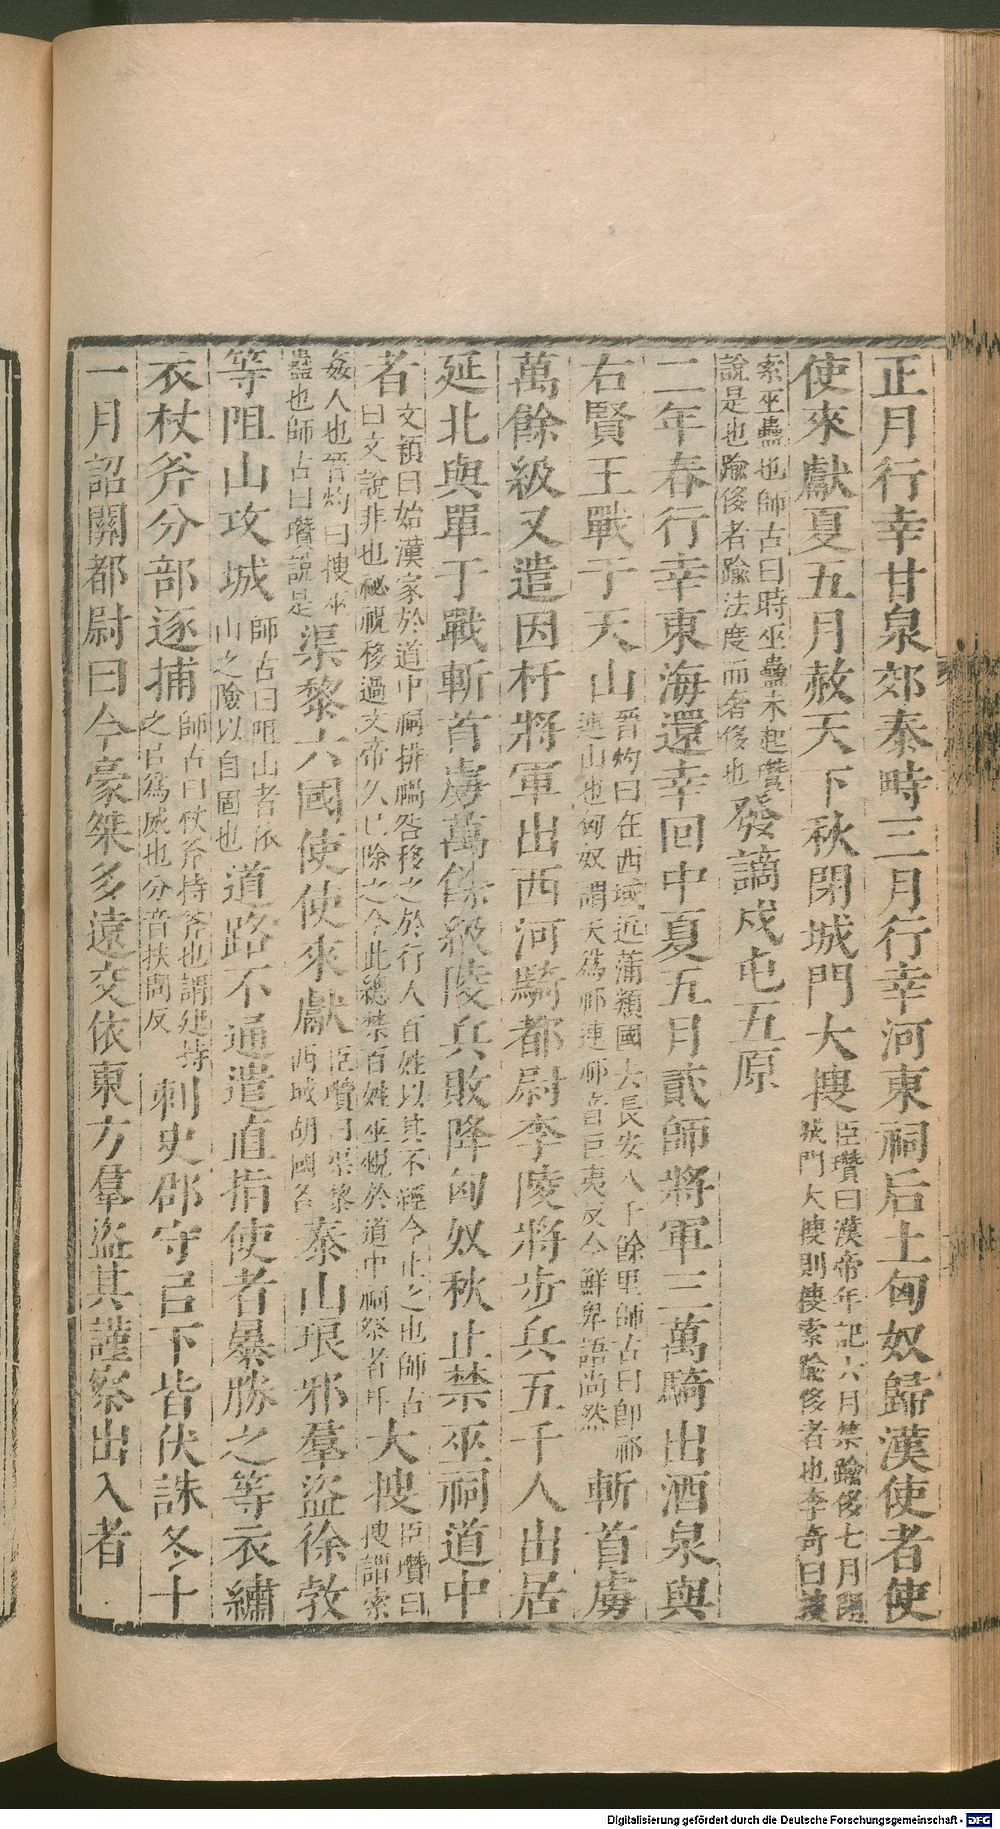 正月行幸甘泉郊泰畤三月行幸河東祠后土匈奴歸漢使者使
使來獻夏五月赦天下秋閉城門大搜臣瓚曰漢帝年記六月禁踰侈七月閉城門大搜則搜索踰侈者也李奇曰
索巫蠱也師古曰時巫蠱未起瓚說是也踰侈者踰法度而奢侈也發讁戍屯五原
二年春行幸東海還幸回中夏五月貳師將軍三萬騎出酒泉與
右賢王戰于天山晉灼曰在西域近蒲類國去長安八千餘里師古曰即祁連山也匈奴謂天爲祁連祁音巨夷反今鮮卑語尚然斬首虜
萬餘級又遣因杅將軍出西河騎都尉李陵將步兵五千人出居
延北與單于戰斬首虜萬餘級陵兵敗降匈奴秋止禁巫祠道中
者文穎曰始漢家於道中祠排禍咎移之於行人百姓以其不經今止之也師古曰文說非也祕祝移過文帝久已除之今此總禁百姓巫覡於道中祠祭者耳大搜臣瓚曰搜謂索
姦人也晉灼曰搜巫蠱也師古曰瓚說是渠黎六國使使來獻臣瓚曰渠黎西域胡國名泰山琅邪羣盜徐㪍
等阻山攻城師古曰阻山者依山之險以自固也道路不通遣直指使者暴勝之等衣繡
衣杖斧分部逐捕師古曰杖斧持斧也謂建持之以爲威也分音扶問反刺史郡守㠯下皆伏誅冬十
一月詔關都尉曰今豪桀多遠交依東方羣盜其謹察出入者
Digitalisierung gefördert durch die Deutsche Forschungsgemeinschaft - DFG